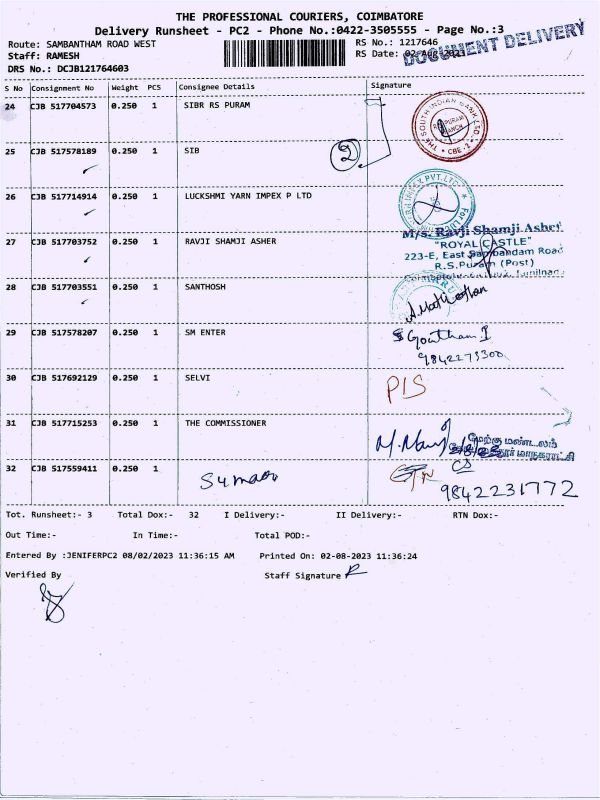 THE PROFESSIONAL COURIERS, COIMBATORE
Delivery Runsheet - PC2 - Phone No.:0422-3505555 - Page No.:3
Route: SAMBANTHAM ROAD WEST
RS No.: 1217646
DOCUMENT DELIVERY
Staff: RAMESH
RS Date: 02-Aug-2023
DRS No.: DCJB121764603
S No Consignment No Weight PCS Consignee Details Signature
24 CJB 517704573 0.250 1 SIBR RS PURAM
SOUTH INDIAN BANK LTD.
R.S. PURAM
BRANCH
CBE-2
25 CJB 517578189 0.250 1 SIB
2
26 CJB 517714914 0.250 1 LUCKSHMI YARN IMPEX P LTD
IMPEX PVT. LTD
27 CJB 517703752 0.250 1 RAVJI SHAMJI ASHER
M/s. Ravji Shamji Asher
"ROYAL CASTLE"
223-E, East Sambandam Road
R.S.Puram (Post)
28 CJB 517703551 0.250 1 SANTHOSH
29 CJB 517578207 0.250 1 SM ENTER
Goutham
30 CJB 517692129 0.250 1 SELVI
PIS
31 CJB 517715253 0.250 1 THE COMMISSIONER
மேற்கு மண்டலம்
32 CJB 517559411 0.250 1
9842231772
Tot. Runsheet:- 3 Total Dox:- 32 I Delivery:- II Delivery:- RTN Dox:-
Out Time:- In Time:- Total POD:-
Entered By :JENIFERPC2 08/02/2023 11:36:15 AM Printed On: 02-08-2023 11:36:24
Verified By Staff Signature